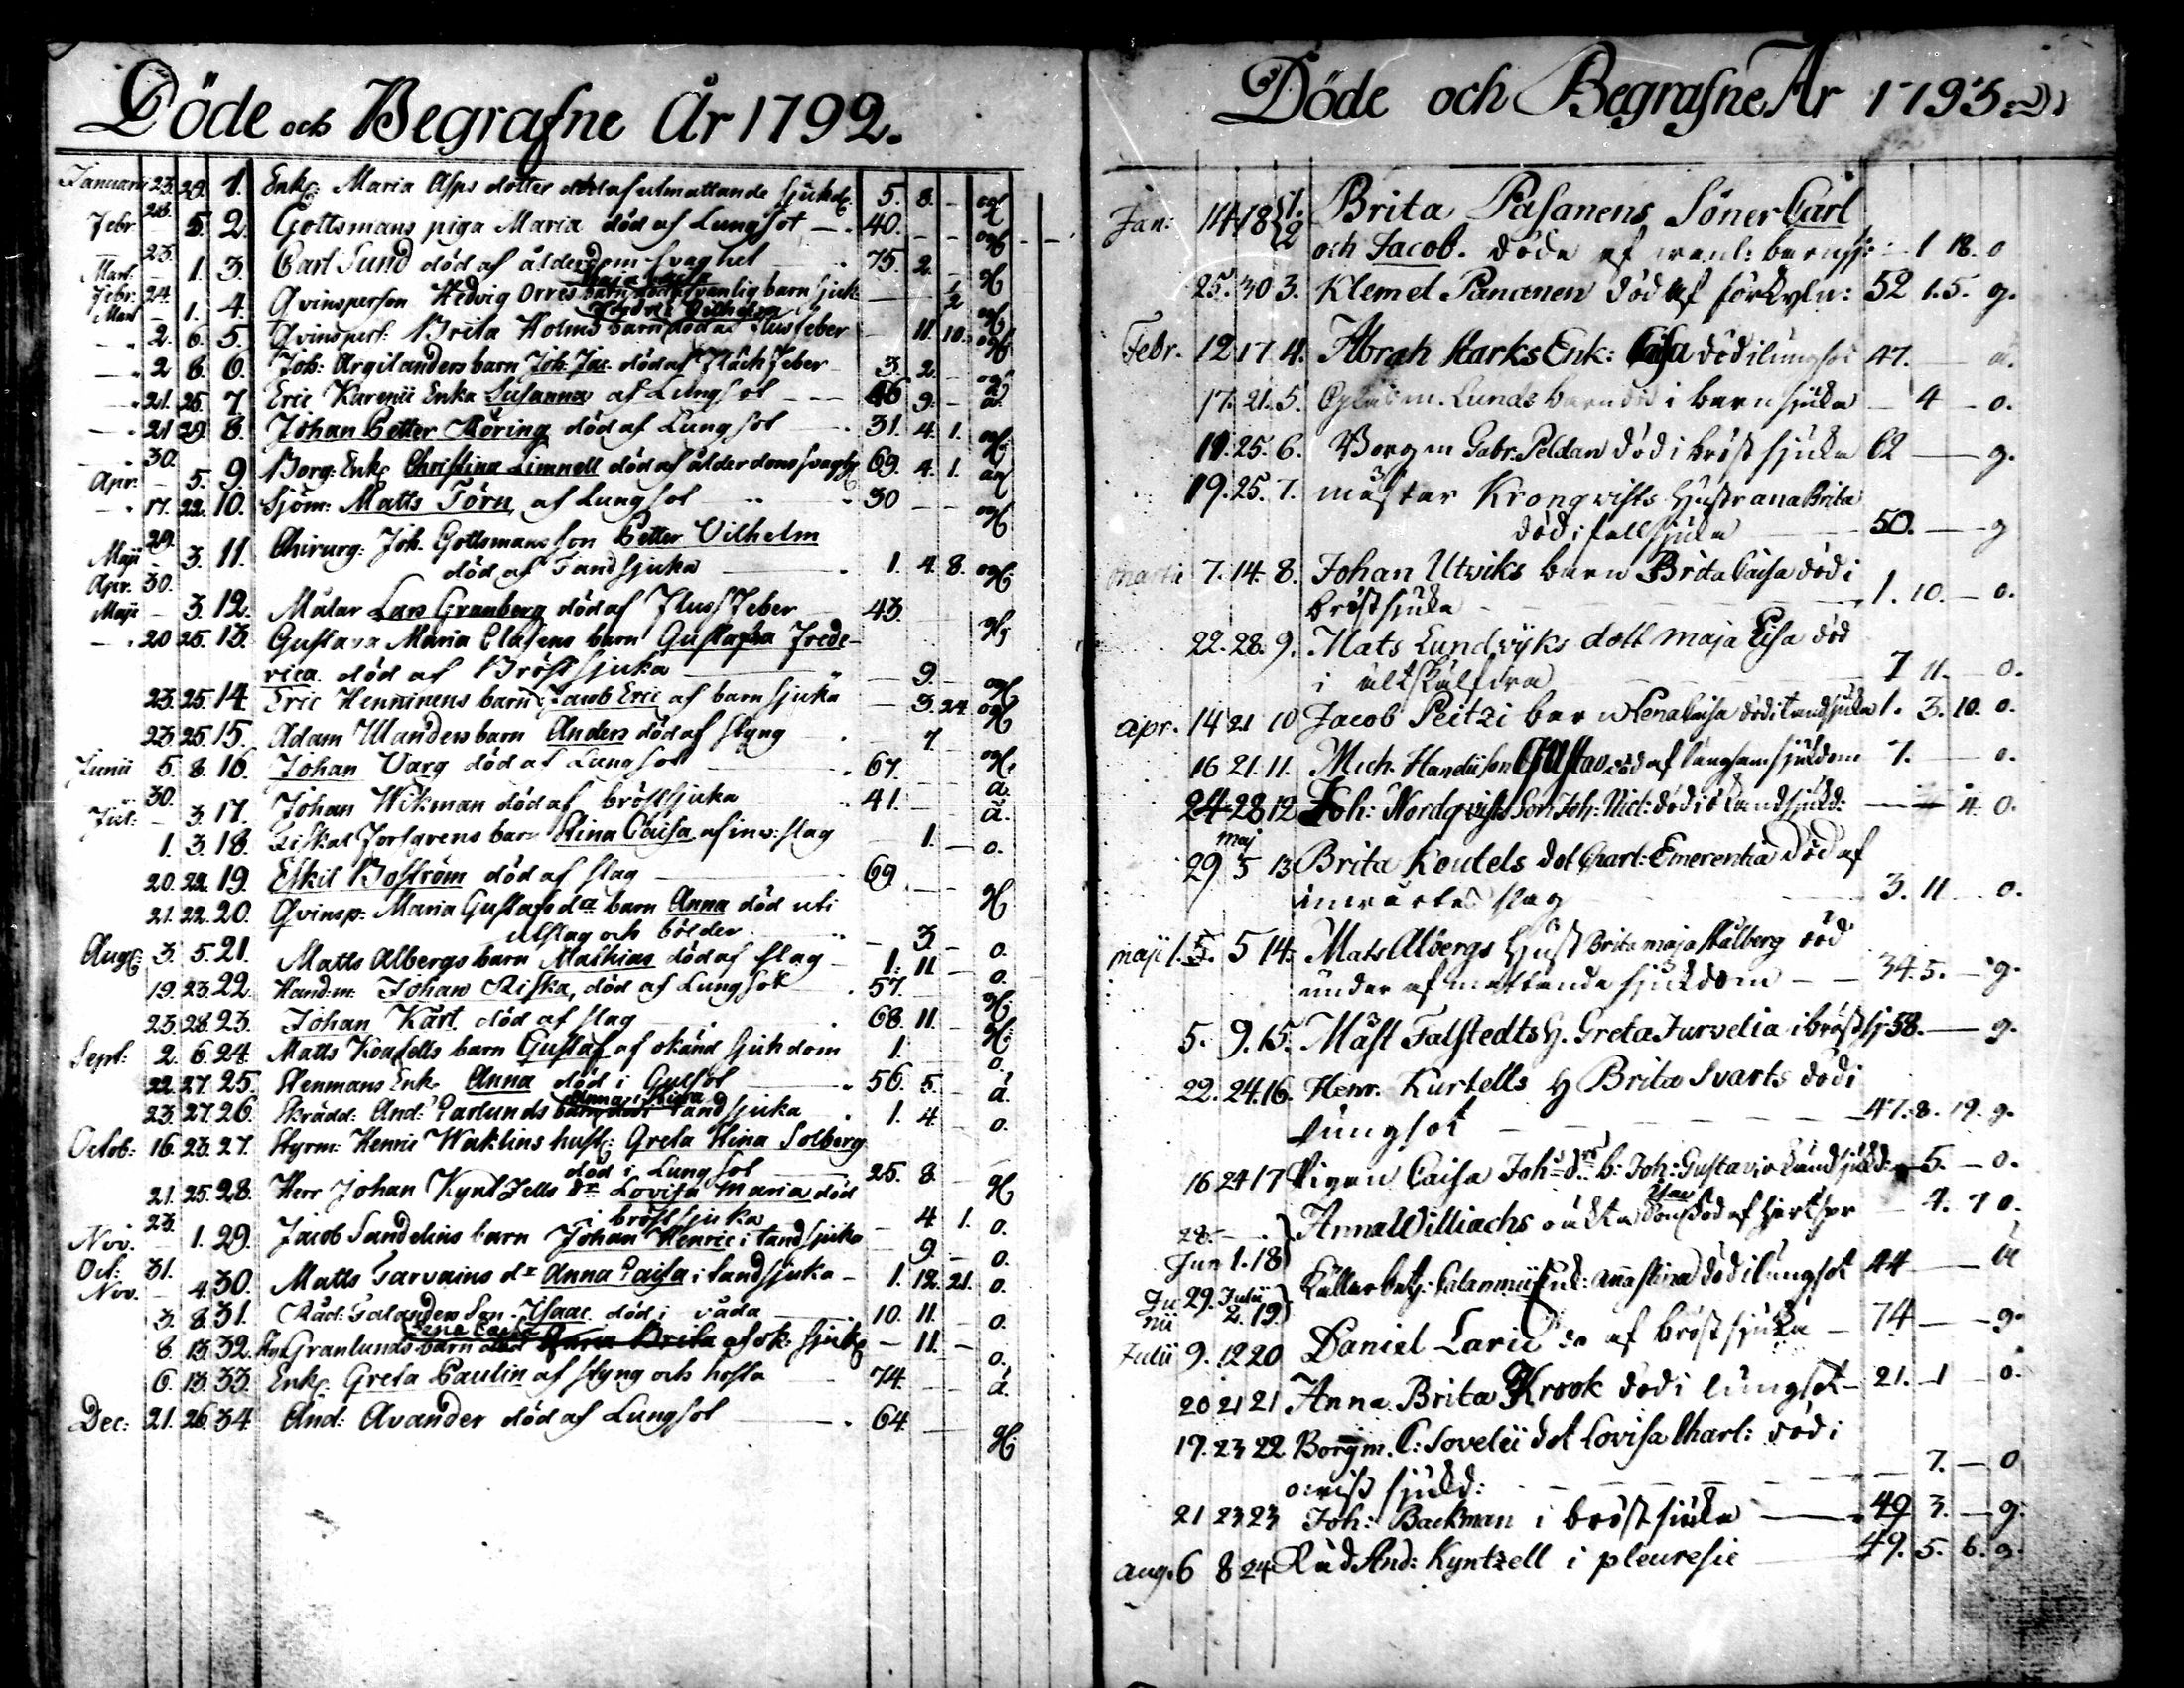 Döde och Begrafne År 1792.
Januarii 23. 29. 1. Enk. Maria Asps dotter död af utmattande Sjukd. 5. 8. –
Febr. 28. 5. 2. Gottsmans piga Maria död af Lungsot 40. – –
23. 1. 3. Carl Sund död af ålderdom svaghet 75. 2.
Mart. Febr. 24. Mart 1. 4. Qvinsperson Hedvig Orres vanlig barn sjuk
2. 6. 5. Qvinspers. Brita Holms barn död af Flussfeber 11. 10.
2 8. 6. Joh: Argilanders barn Joh: Jac. död af Fläck Feber 3. 2.
21. 25. 7 Eric Karenii Enka Susanna af Lungsot 46 9.
21 29. 8. Johan Petter Röring död af Lungsot 31. 4. 1.
30. Apr. 5. 9. Borg: Enk. Christina Limnell död af ålderdoms svaght 69. 4. 1.
17. 22. 10. Sjöm: Matts Törn af Lungsot 30
29. Maji 3. 11. Chirurg: Joh. Gottsmans son Petter Vilhelm
död af Tandsjuka 1. 4. 8.
Apr. 30. Maji 3. 12. Målar Lars Granberg död af Fluss Feber 43.
20 25. 13. Gustava Maria Clasens barn Gustafva Frede-
rica död af Bröstsjuka 9.
23. 25. 14 Eric Henninens barn Jacob Eric af barnsjuka 3. 24.
23 25. 15. Adam Wanders barn Anders död af styng 7.
Junii 5. 8. 16. Johan Varg död af Lungsot 67.
30. Jul: 3. 17. Johan Wikman död af bröstsjuka 41. å.
1. 3. 18. Forsgrens barn Stina Caisa af inv: slag 1. o.
20. 22. 19. Eskil Boström död af slag 69.
21. 22. 20. Qvinsp: Maria Gustafs dr barn Anna död uti
utslag och bölder 3. o.
Aug: 3. 5. 21. Matts Albergs barn Mathias död af slag 1. 11 o.
19. 23. 22. Hand:m: Johan Riska, död af Lungsot 57.
23. 28. 23. Johan Kärt död af slag 68. 11.
Sept: 2. 6. 24. Matts Koafells barn Gustaf af okänd sjukdom 1. o.
22. 27. 25. Stenmans Enk. Anna död i Gulsot 56. 5. å.
23. 27. 26. Skrädd: And: Garlunds barn Anna Stina Tandsjuka 1. 4. o.
Octob: 16. 23. 27. Styrm: Henric Waklins hust: Greta Stina Solberg
död i Lungsot 25. 8.
21. 25. 28. Herr Johan Kyntzells dr Lovisa Maria död
i bröstsjuka 4. 1. o.
23. Nov. 1. 29. Jacob Sandelins barn Johan Henric i tandsjuka 9. o.
Oct: 31. Nov. 4. 30. Matts Tarvains dr Anna Caisa i tandsjuka 1. 12. 21. o.
3. 8. 31. Råd: Salanders Son Isaac död i våda 10. 11. o.
8. 13. 32. Granlunds barn Lena Caisa Maria Brita af ok: sjukd 11. o.
6. 13. 33. Enk. Greta Paulin af styng och hosta 74. å.
Dec: 21. 26. 34 And: Avander död af Lungsot 64.
Döde och Begrafne År 1793
Jan: 14. 18 1. 2 Brita Pasanens Söner Carl
och Jacob. döda af vanl: barnsj: 1 18. o
25. 30 3. Klemet Pananen död af förkyln: 52 1. 5. g.
Febr. 12 17. 4. Abrah Starks Enk: Caisa död i lungsot 47. å.
17. 21. 5. Lunds barn död i barnsjuka 4 o.
19. 25. 6. Borgm Gabr. Peldan död i bröstsjuka 62 g.
19. 25. 7. mästar Kronqvists Hustr ana Brita
död i fallsjuka 50. g
Martii 7. 14. 8. Johan Utviks barn Brita Caisa död i
bröstsjuka 1. 10. o.
22. 28. 9. Mats Lundvyks dott Maja Lisa död
i 7 11. o.
apr. 14 21 10 Jacob Peitzi barn Lena Caisa död i tandsjuka 1. 3. 10. o.
16 21. 11. Mich. Handii son Gustav död af långsam sjukdom 7. o.
24 28 12 Joh: Nordqvists Son Joh: Nicl: död i okänd sjukd: 4. o.
29 maj 5 13 Brita Koutels dot Charl: Emerentia död af
invärtes slag 3. 11 o.
maji 1. 5. 5 14. Mats Albergs Hust Brita maja Stålberg död
under afmattande sjukdom 34. 5. g.
5. 9. 15. Mäst Falstedts H. Greta Jurvelia i bröstsj 58. g.
22. 24. 16. Henr. Kurtells H Brita Svarts död i
lungsot 47. 8. 19. g.
16 24 17 Pigan Caisa Joh:s drs b: Joh: Gustav i okänd sjukd: 5. o.
28. Jun 1. 18 Anna Williachs oäkta son död af 4. 7 o.
Junii 29. Julii 2. 19. Enk: Anna Stina död i lungsot 44
Julii 9. 12 20 Daniel Laric do af bröstsjuka 74 g.
20 21 21 Anna Brita Krook död i lungsot 21. 1 o.
19. 23 22 Borgm. C: Sovelii dot Lovisa Charl: död i
oviss sjukd: 7. o
21 23 23 Joh: Backman i bröstsjuka 49 3. g.
aug. 6 8 24 Råd And: Kyntzell i pleuresie 49. 5. 6. g.